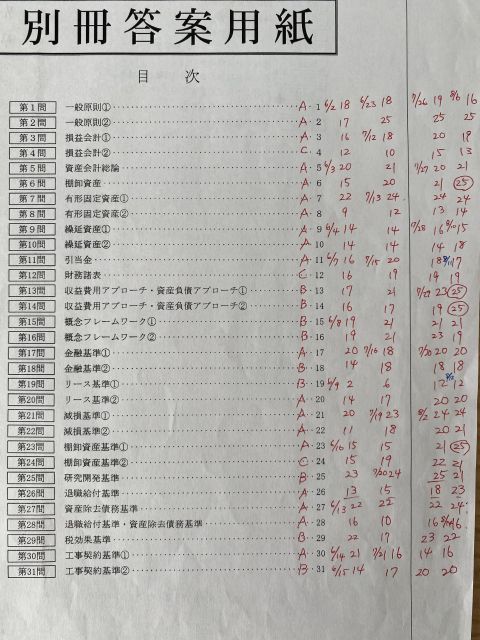 別冊答案用紙
目 次
第1問 一般原則① A・1 6/2 18 6/23 18 7/26 19 8/6 16
第2問 一般原則② A・2 17 25 25 25
第3問 損益会計① A・3 16 7/12 18 20 18
第4問 損益会計② C・4 12 10 15 13
第5問 資産会計総論 A・5 6/3 20 21 7/27 20 21
第6問 棚卸資産 A・6 15 20 21 25
第7問 有形固定資産① A・7 22 7/13 24 24 24
第8問 有形固定資産② A・8 9 12 13 14
第9問 繰延資産① A・9 6/4 14 14 7/28 16 15
第10問 繰延資産② A・10 14 14 14 18
第11問 引当金 A・11 6/7 16 7/15 20 18 17
第12問 財務諸表 C・12 16 19 19 19
第13問 収益費用アプローチ・資産負債アプローチ① B・13 17 21 7/29 23 25
第14問 収益費用アプローチ・資産負債アプローチ② B・14 16 17 19 25
第15問 概念フレームワーク① B・15 6/8 19 21 21 21
第16問 概念フレームワーク② B・16 19 21 23 19
第17問 金融基準① A・17 20 7/16 18 7/30 20 20
第18問 金融基準② B・18 14 18 18 18
第19問 リース基準① B・19 6/9 2 6 12 12
第20問 リース基準② A・20 14 17 20 20
第21問 減損基準① A・21 20 7/19 23 8/2 24 24
第22問 減損基準② A・22 11 18 20 21
第23問 棚卸資産基準① A・23 6/10 15 15 21 25
第24問 棚卸資産基準② C・24 15 19 22 21
第25問 研究開発基準 B・25 23 7/20 24 25 21
第26問 退職給付基準 A・26 13 15 18 23
第27問 資産除去債務基準 A・27 6/13 22 22 22 24
第28問 退職給付基準・資産除去債務基準 A・28 16 10 16 16
第29問 税効果基準 B・29 22 17 23 22
第30問 工事契約基準① A・30 6/14 21 7/21 16 14 16
第31問 工事契約基準② B・31 6/15 14 17 20 20